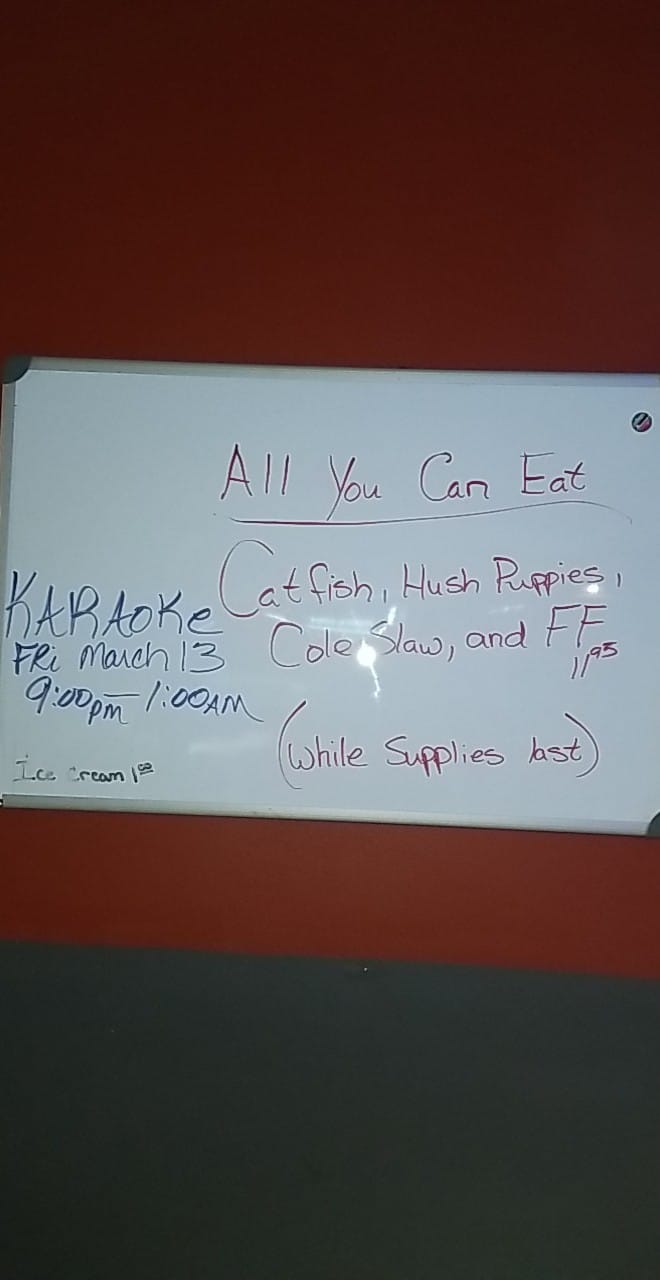 All You Can Eat
Catfish, Hush Puppies,
Cole Slaw, and FF
11.95
(While Supplies last)
KARAOKE
FRi March 13
9:00pm - 1:00AM
Ice cream 1.00